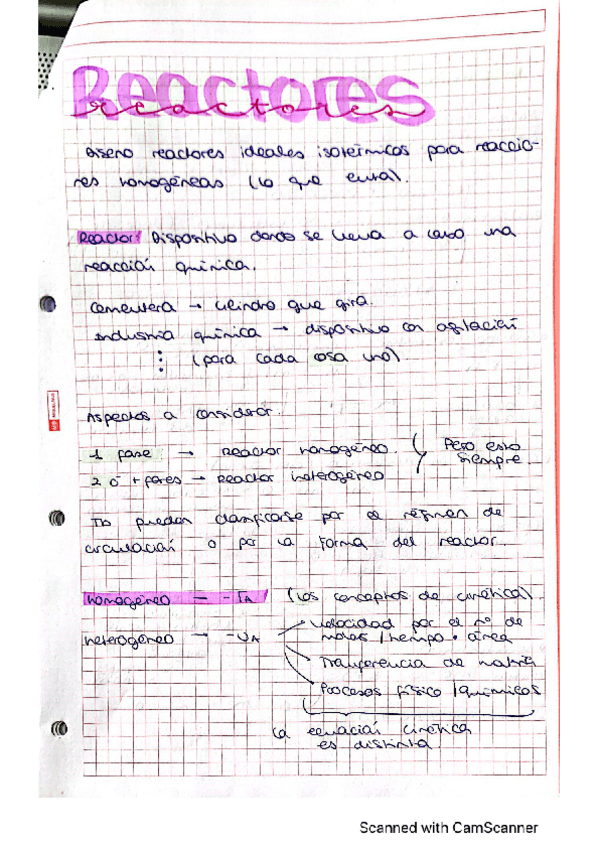 Reactores
reactores
Diseño reactores ideales isotérmicos para reaccio-
nes homogéneas (lo que entra).
Reactor: Dispositivo donde se lleva a cabo una
reacción química.
Cementera → cilindro que gira.
Industria química → dispositivo con agitación
⋮ (para cada cosa uno)
Aspectos a considerar.
1 fase → Reactor homogéneo.
2 ó + fases → Reactor heterogéneo
Pero esto
siempre
Tb pueden clasificarse por el régimen de
circulación o por la forma del reactor.
homogéneo → -rA (los conceptos de cinética).
heterogéneo →
Velocidad por el nº de
moles / tiempo • área
Transferencia de materia
Procesos físico / químicos
La ecuación cinética
es distinta.
Scanned with CamScanner